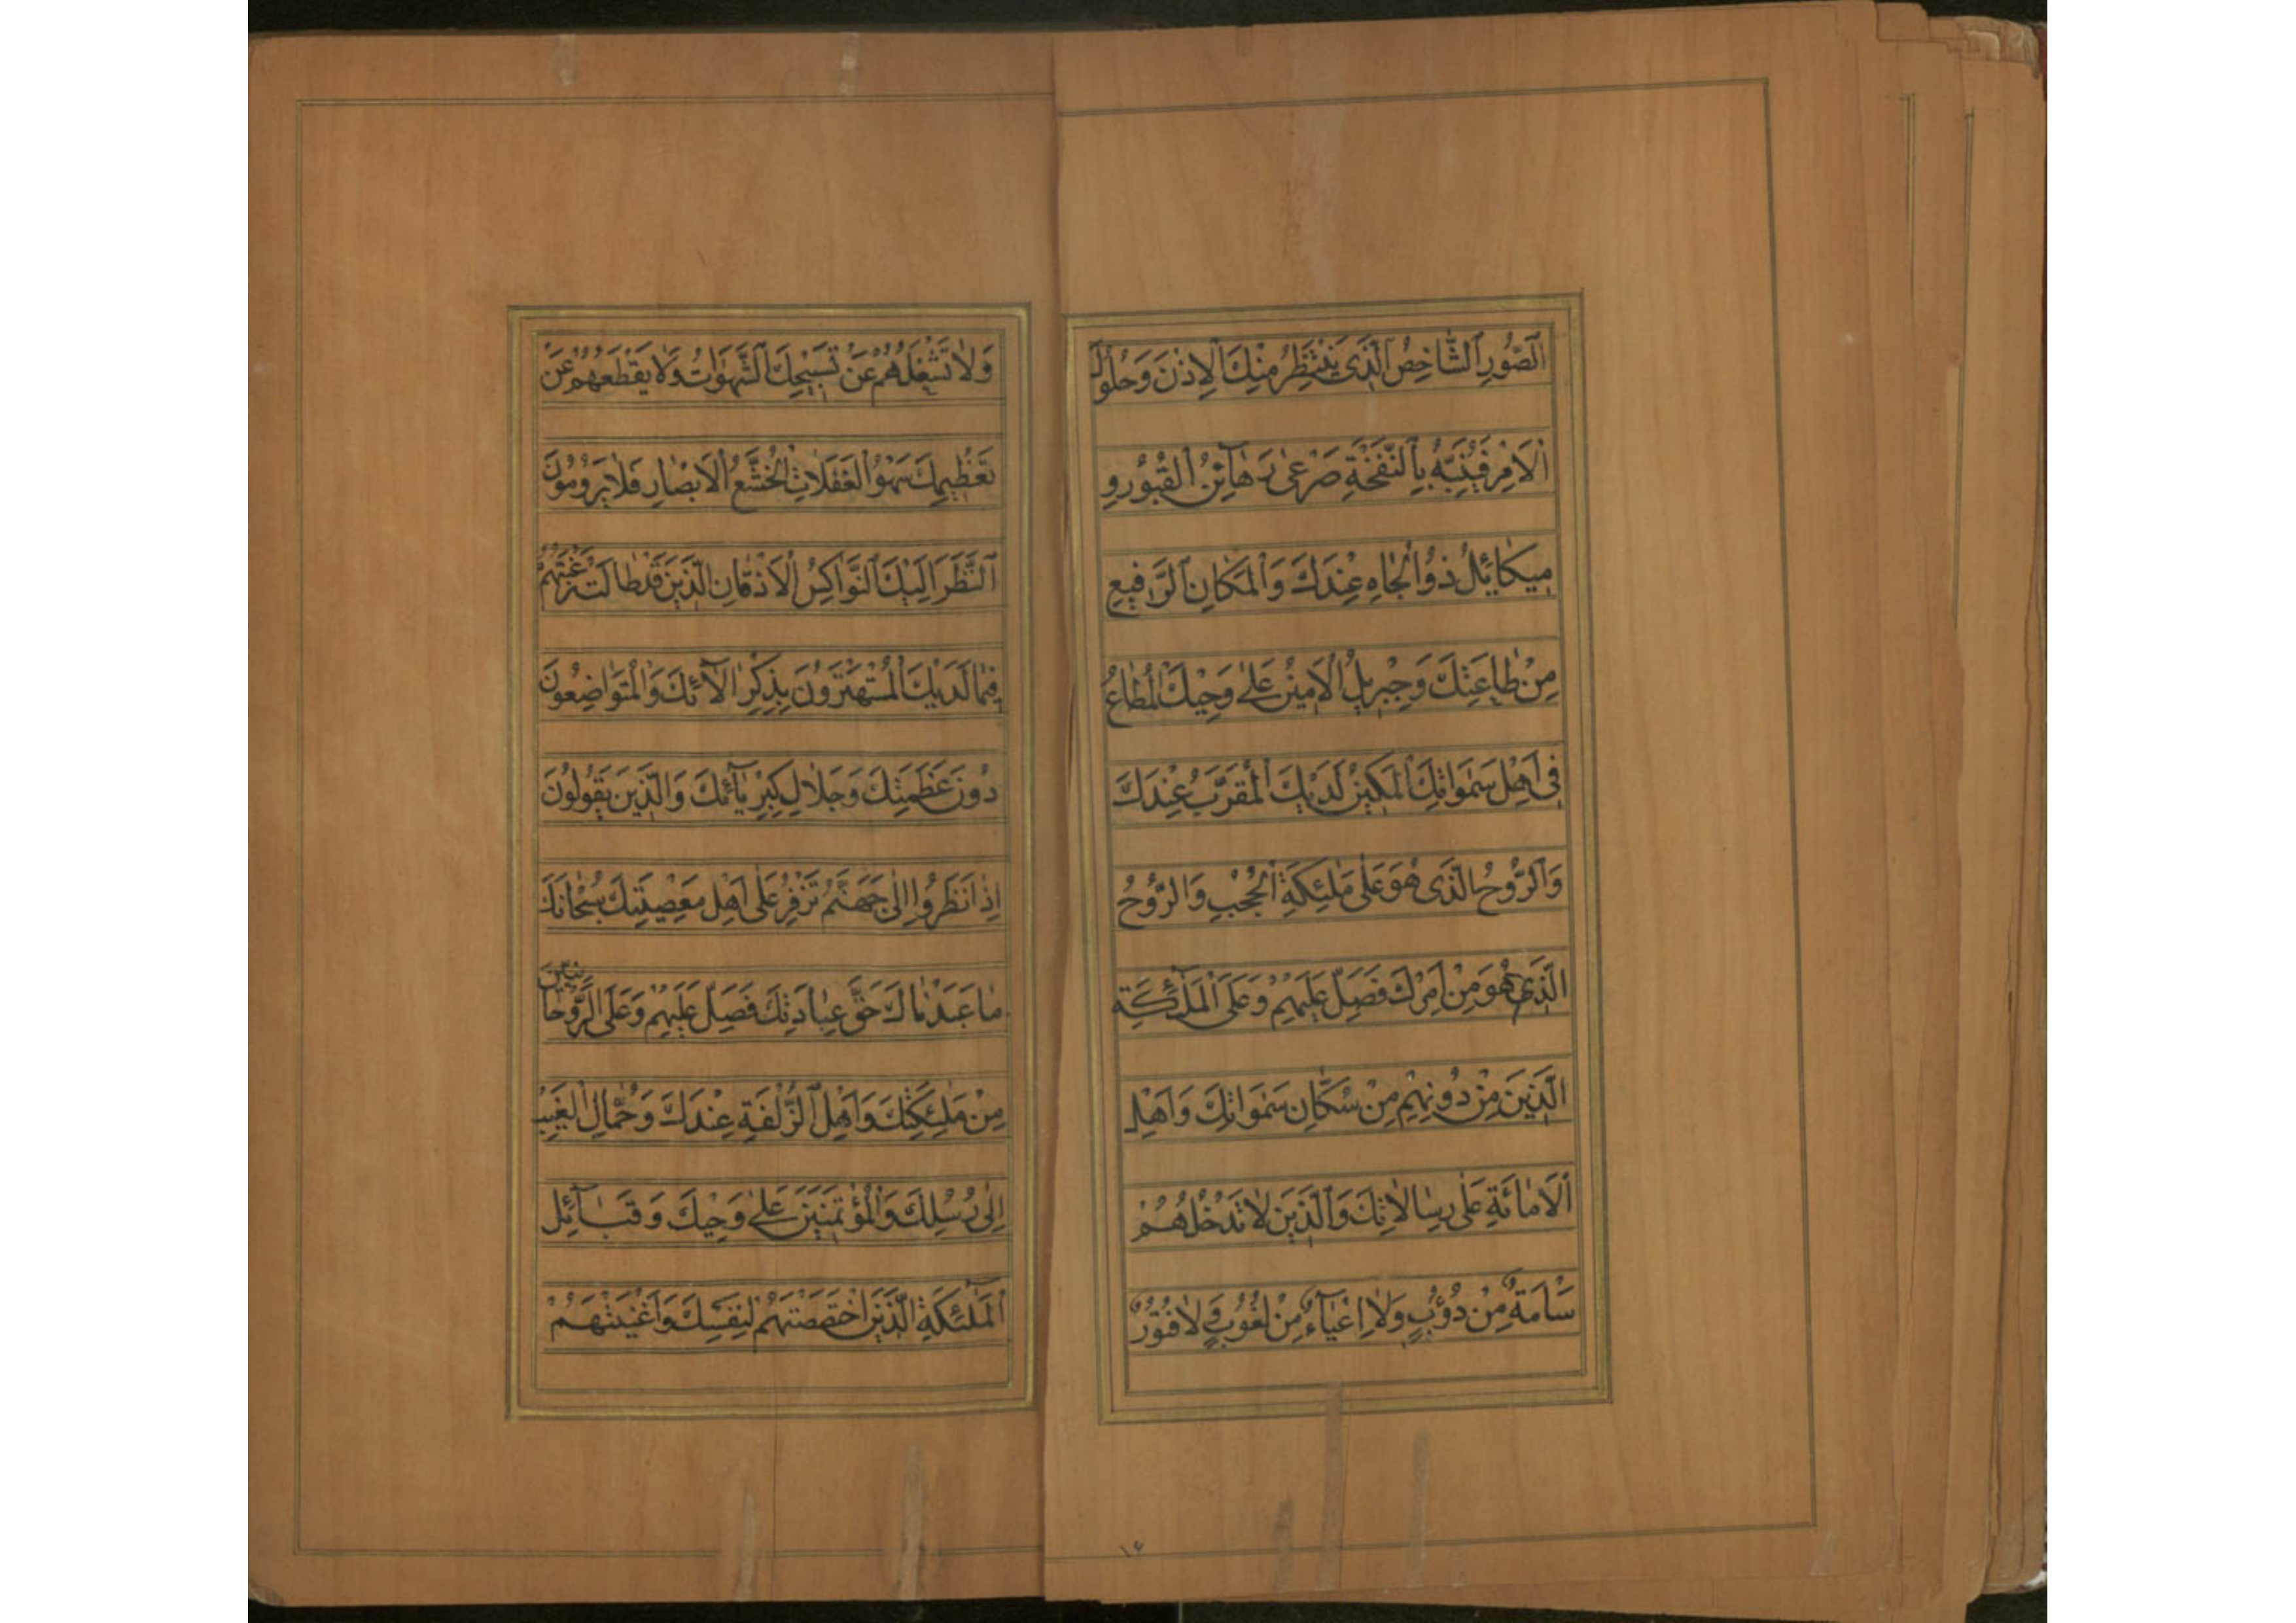 اَلصُّورِ اَلشَّاخِصُ اَلَّذی یَنْتَظِرُ مِنْكَ اَلاِذْنَ وَحُلُولَ
اَلْاَمْرِ فَیُنَبِّهُ بِالنَّفْخَةِ صَرْعیٰ رَهٰآئِنِ اَلْقُبُورِ وَ
میكٰائیلُ ذُواَلْجٰاهِ عِنْدَكَ وَاَلْمَكٰانِ اَلرَّفیعِ
مِنْ طٰاعَتِكَ وَجِبْریلُ اَلْاَمینُ عَلیٰ وَحْیِكَ اَلْمُطٰاعُ
فی اَهْلِ سَمٰوٰاتِكَ اَلْمَكینُ لَدَیْكَ اَلْمُقَرَّبُ عِنْدَكَ
وَاَلرُّوحُ الَّذی هُوَ عَلیٰ مَلٰئِكَةِ اَلْحُجُبِ وَالرُّوحُ
الَّذی هُوَ مِنْ اَمْرِكَ فَصَلِّ عَلَیْهِمْ وَعَلَی اَلْمَلٰٓئِكَةِ
الَّذینَ مِنْ دُونِهِمْ مِنْ سُكَّانِ سَمٰوٰاتِكَ وَاَهْلِ
اَلْاَمٰانَةِ عَلیٰ رِسٰالاٰتِكَ وَاَلَّذینَ لاٰتَدْخُلُهُمْ
سَاْمَةٌ مِنْ دُؤُبٍ وَلاٰ اِعْیٰآءٌ مِنْ لُغُوبٍ وَلاٰ فُتُورٌ
١٤
وَلاٰ تَشْغَلُهُمْ عَنْ تَسْبیحِكَ اَلشَّهَوٰاتُ وَلاٰ یَقْطَعُهُمْ عَنْ
تَعْظیمِكَ سَهْوُ اَلْغَفَلاٰتِ اَلْخُشَّعُ اَلْاَبْصٰارِ فَلاٰ یَرُومُونَ
اَلنَّظَرَ اِلَیْكَ اَلنَّوٰاكِسُ اَلْاَذْقٰانِ الَّذینَ قَدْ طٰالَتْ رَغْبَتُهُمْ
فیمٰا لَدَیْكَ اَلْمُسْتَهْتَرُونَ بِذِكْرِ اٰلآٰئِكَ وَاَلْمُتَوٰاضِعُونَ
دُونَ عَظَمَتِكَ وَجَلاٰلِ كِبْرِیٰآئِكَ وَالَّذینَ یَقُولُونَ
اِذٰا نَظَرُوا اِلیٰ جَهَنَّمَ تَزْفِرُ عَلیٰ اَهْلِ مَعْصِیَتِكَ سُبْحٰانَكَ
مٰا عَبَدْنٰاكَ حَقَّ عِبٰادَتِكَ فَصَلِّ عَلَیْهِمْ وَعَلَی الرَّوْحٰانِیّینَ
مِنْ مَلٰئِكَتِكَ وَاَهْلِ اَلزُّلْفَةِ عِنْدَكَ وَحُمّٰالِ اَلْغَیْبِ
اِلیٰ رُسُلِكَ وَاَلْمُؤْتَمَنینَ عَلیٰ وَحْیِكَ وَ قَبٰآئِلِ
اَلْمَلٰٓئِكَةِ الَّذینَ اخْتَصَصْتَهُمْ لِنَفْسِكَ وَاَغْنَیْتَهُمْ